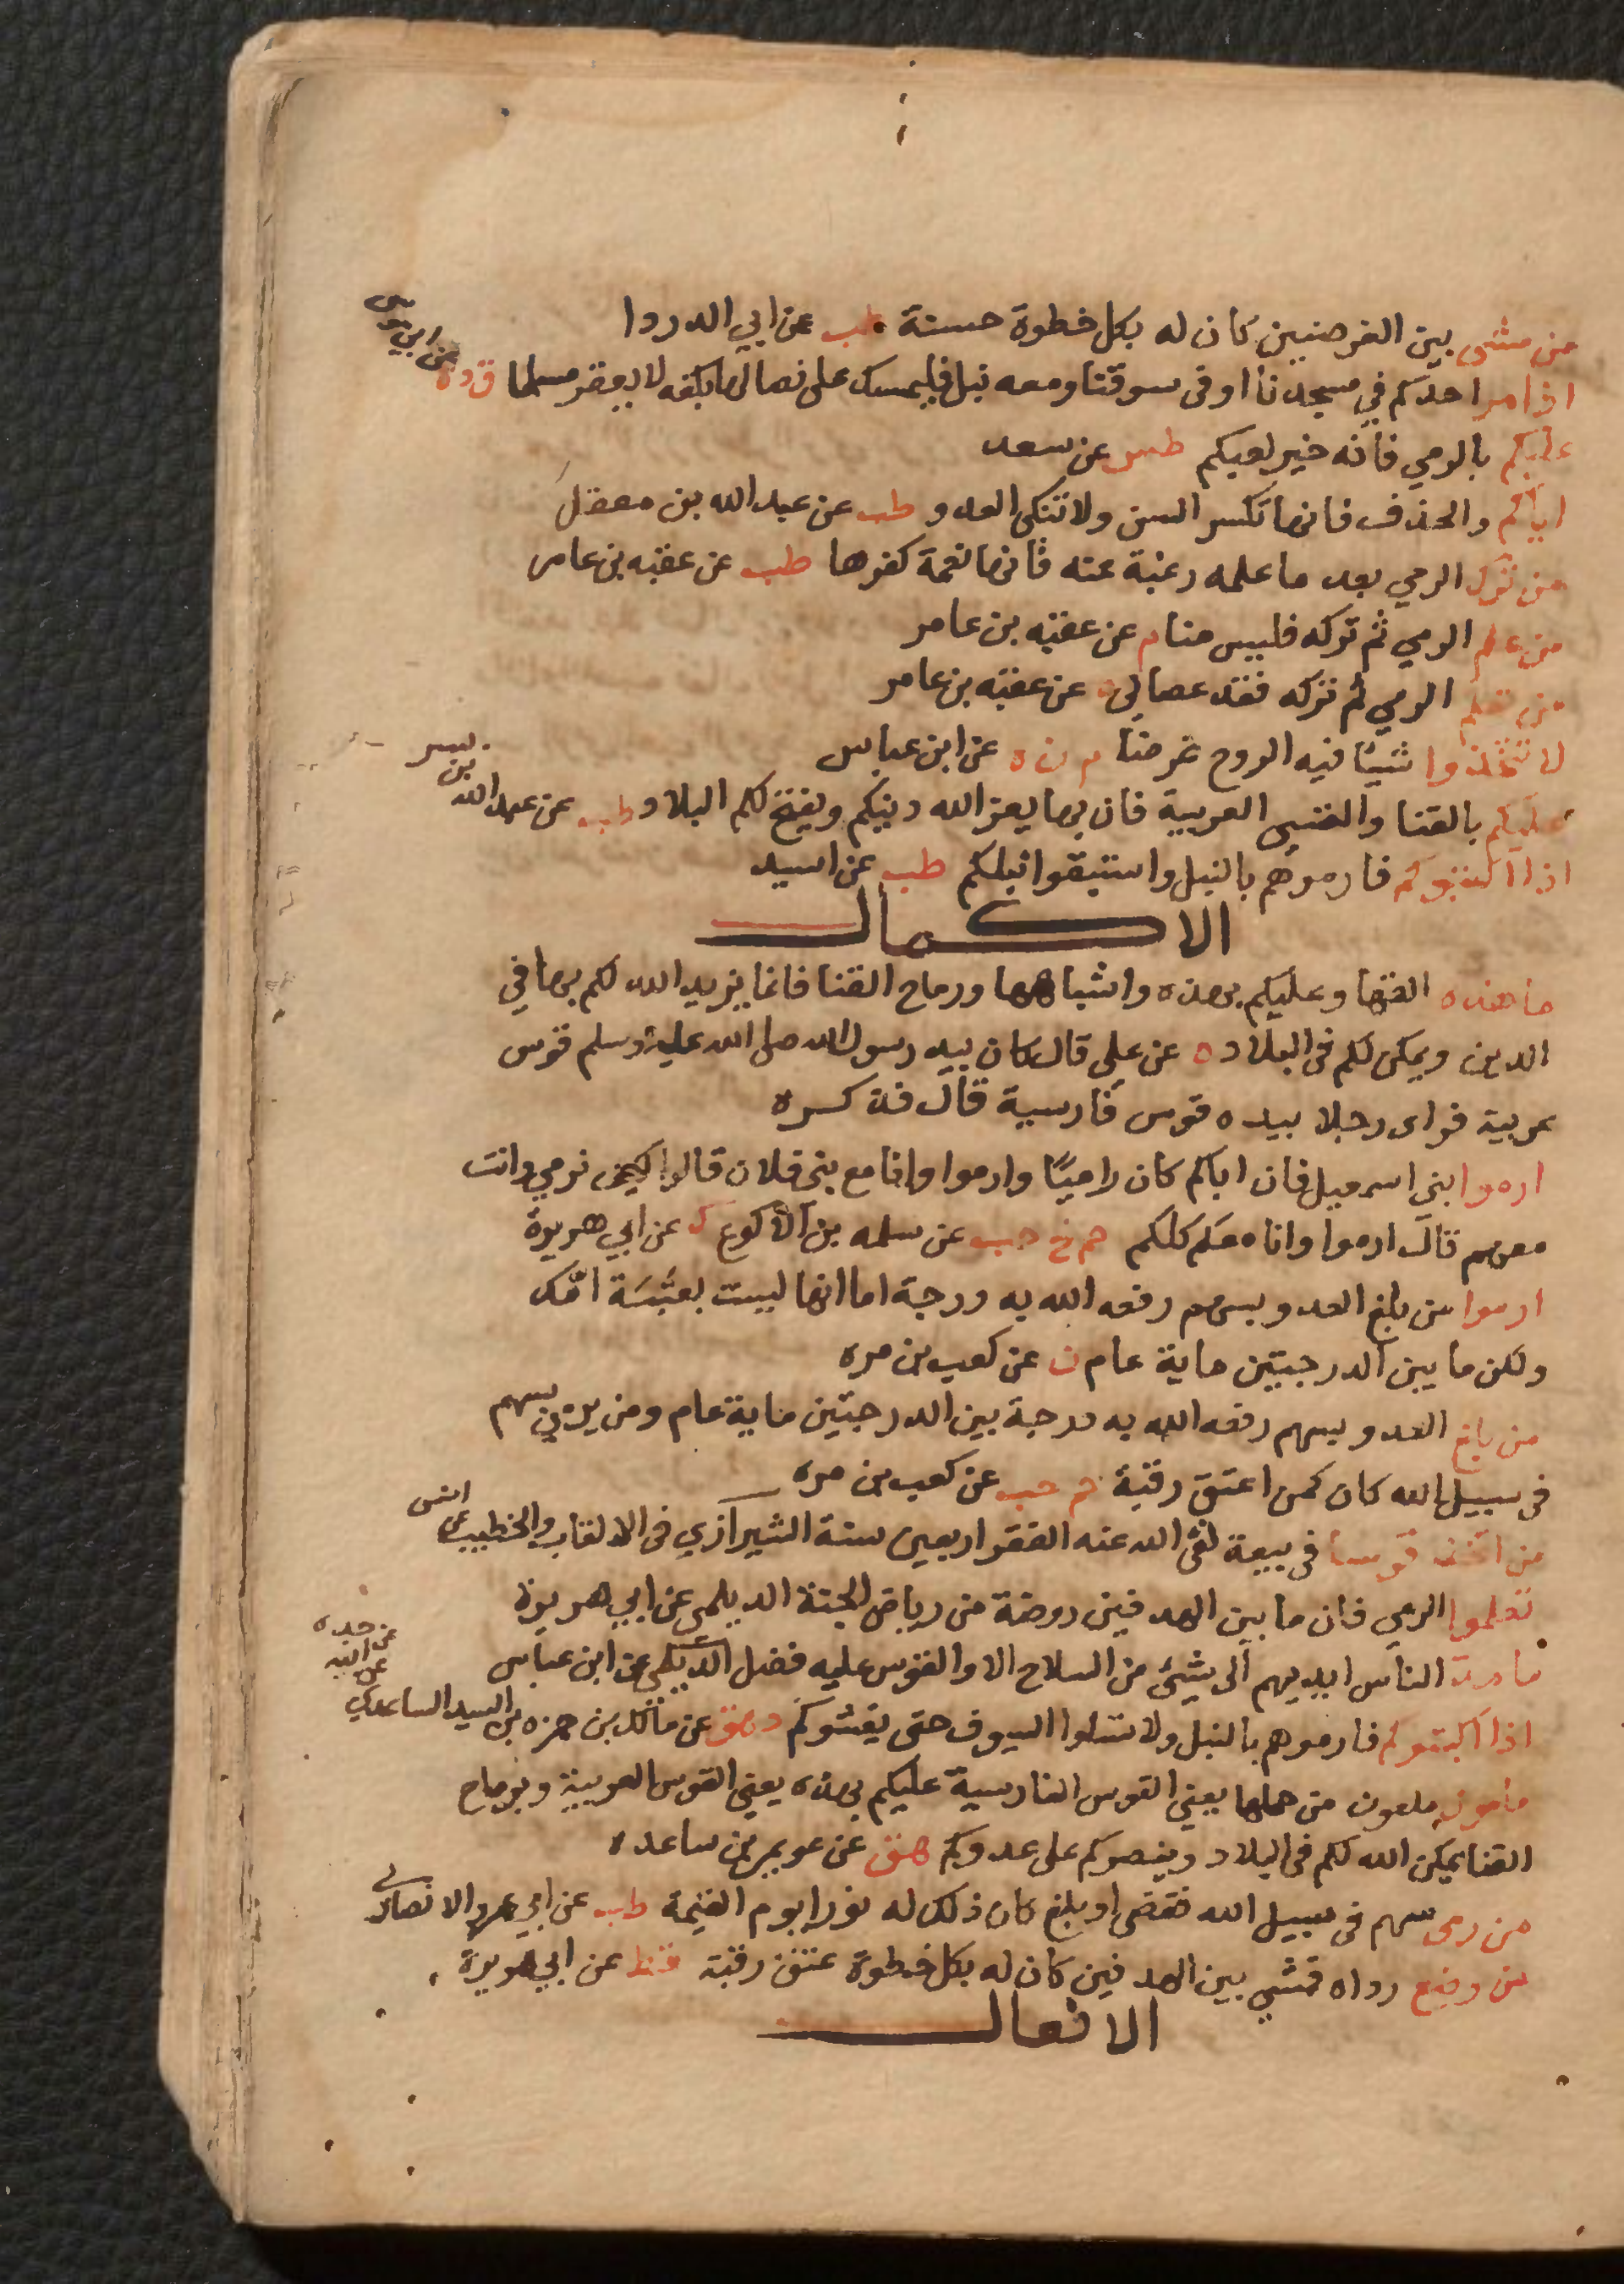 من مشى بين الغرضين كان له بكل خطوة حسنة طب عن ابي الدردا
اذا مر احدكم في مسجدنا او في سوقنا ومعه نبل فليمسك على نصالها بكفه لا يعقر مسلما ق د ه عن ابي موسى
عليكم بالرمي فانه خير لعبكم طس عن سعد
اياكم والحذف فانها تكسر السن ولا تنكى العدو طب عن عبد الله بن معفل
من ترك الرمي بعد ما علمه رغبة عنه فانها نعمة كفرها طب عن عقبه بن عامر
من علم الرمي ثم تركه فليس منا م عن عقبه بن عامر
من تعلم الرمي ثم تركه فقد عصاني ه عن عقبه بن عامر
لا تتخذوا شيئا فيه الروح غرضا م ن ه عن ابن عباس
عليكم بالقنا والقسى العربية فان بها يعز الله دينكم ويفتح لكم البلاد طب عن عبد الله بن بسر
اذا اكثبوكم فارموهم بالنبل واستبقوا نبلكم طب عن اسيد
الاكمال
ما هذه القها وعليكم بهذه واشباهها ورماح القنا فانما يزيد الله لكم بها في
الدين ويمكن لكم في البلاد ه عن علي قال كان بيد رسول الله صلى الله عليه وسلم قوس
عربية فراى رجلا بيده قوس فارسية قال فذكره
ارموا بني اسمعيل فان اباكم كان راميًا وارموا وانا مع بني فلان قالوا كيف نرمي وانت
معهم قال ارموا وانا معكم كلكم حم خ حب عن سلمه بن الاكوع ك عن ابي هريرة
ارموا من بلغ العدو بسهم رفعه الله به درجة اما انها ليست بعتبَة امّك
ولكن ما بين الدرجتين ماية عام ن عن كعب بن مره
من بلغ العدو بسهم رفعه الله به درجة بين الدرجتين ماية عام ومن رمى بسهم
في سبيل الله كان كمن اعتق رقبة حم حب عن كعب بن مره
من اتخذ قوسا في بيته نفى الله عنه الفقر اربعين سنة الشيرازي في الالقاب والخطيب عن انس
تعلموا الرمي فان ما بين الهدفين روضة من رياض الجنة الديلمى عن ابي هريرة
ما مدت الناس ايديهم الى شئ من السلاح الا وللقوس عليه فضل الديلمى عن ابن عباس
اذا اكثبوكم فارموهم بالنبل ولا تسلوا السيوف حتى يغشوكم د هق عن مالك بن حمزه بن اسيد الساعدي عن ابيه عن جده
ملعونه ملعون من حملها يعني القوس الفارسية عليكم بهذه يعني القوس العربية وبرماح
القنا يمكن الله لكم في البلاد وينصركم على عدوكم هق عن عويمر بن ساعده
من رمى بسهم في سبيل الله فقصر او بلغ كان ذلك له نورا يوم القيمة طب عن ابي عمرو الانصاري
من وضع رداه فمشى بين الهدفين كان له بكل خطوة عتق رقبة قط عن ابي هريرة
الافعال